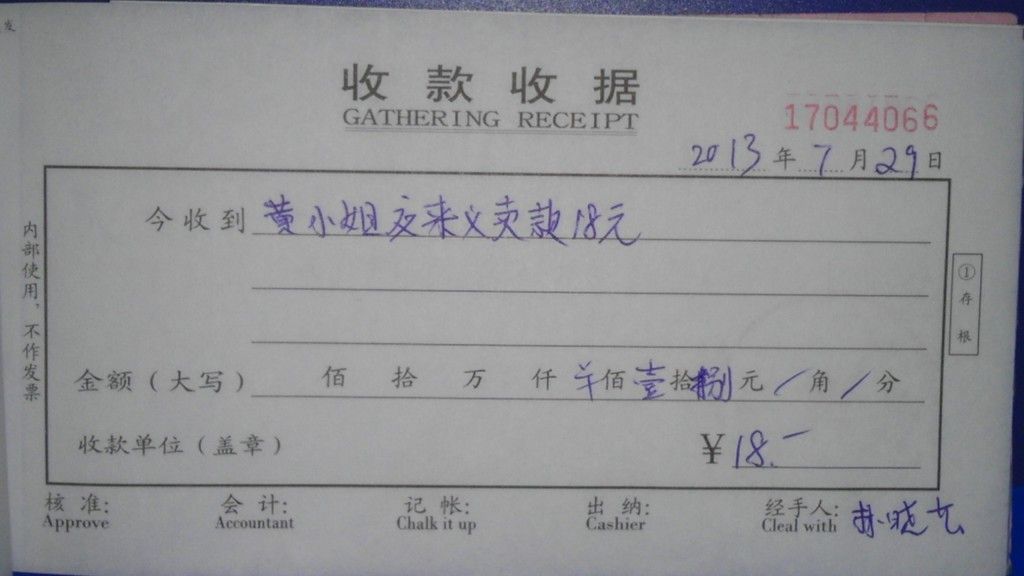 收款收据
GATHERING RECEIPT
17044066
2013年7月29日
今收到 黄小姐交来义卖款18元
金额(大写) 佰 拾 万 仟 ¥佰壹拾捌元/角/分
收款单位(盖章) ¥18.-
核准: 会计: 记帐: 出纳: 经手人:
Approve Accountant Chalk it up Cashier Cleal with
内部使用,不作发票
①存根